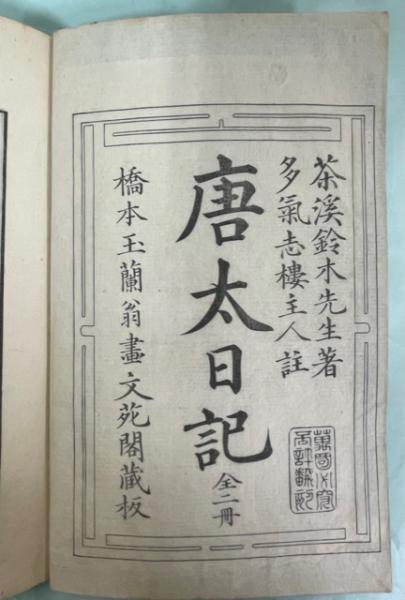 茶溪鈴木先生著
多氣志樓主人註
唐太日記
全二冊
橋本玉蘭翁畫文苑閣藏板